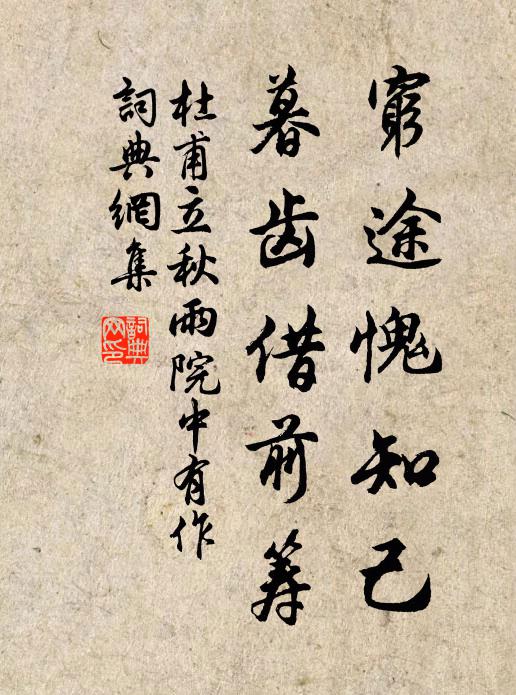 窮途愧知己
暮齿借前筹
杜甫立秋雨院中有作
詞典網集
詞典网印